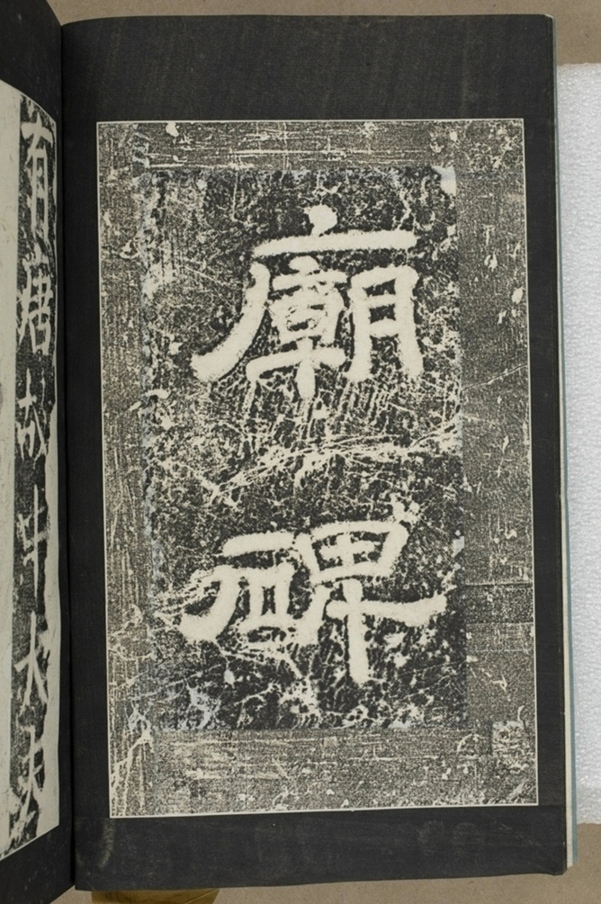 廟碑
有唐故中大夫